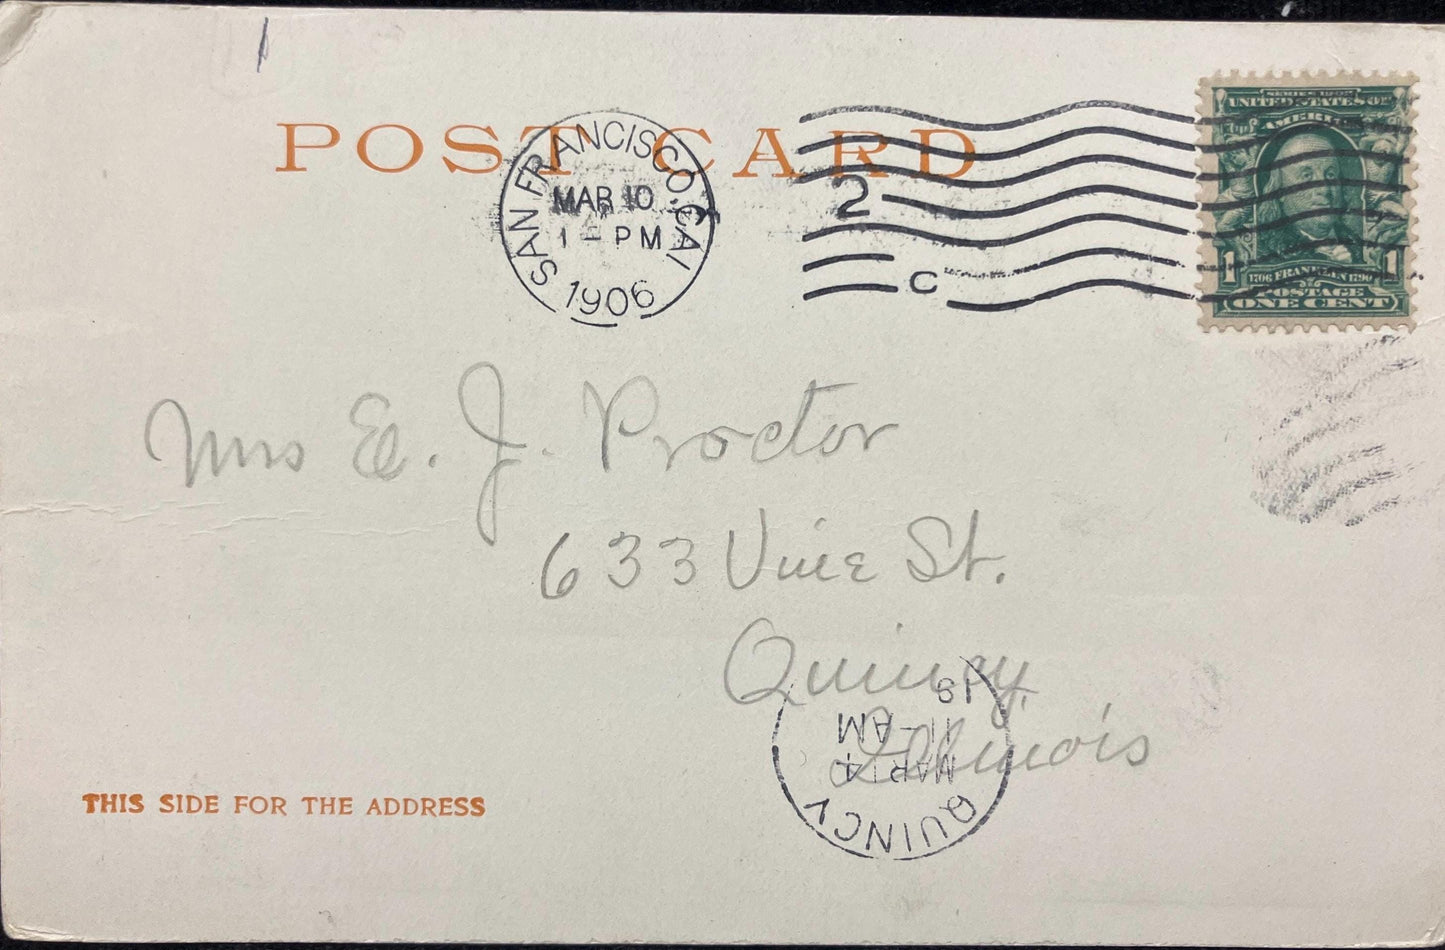 POST CARD
SAN FRANCISCO, CAL
MAR 10
1 - PM
1906
2
C
SERIES 1902
UNITED STATES OF
AMERICA
1 1706 FRANKLIN 1790 1
POSTAGE
ONE CENT
Mrs E. J. Proctor
633 Vine St.
Quincy,
Illinois
QUINCY
MAR 14
11 - AM
19
THIS SIDE FOR THE ADDRESS